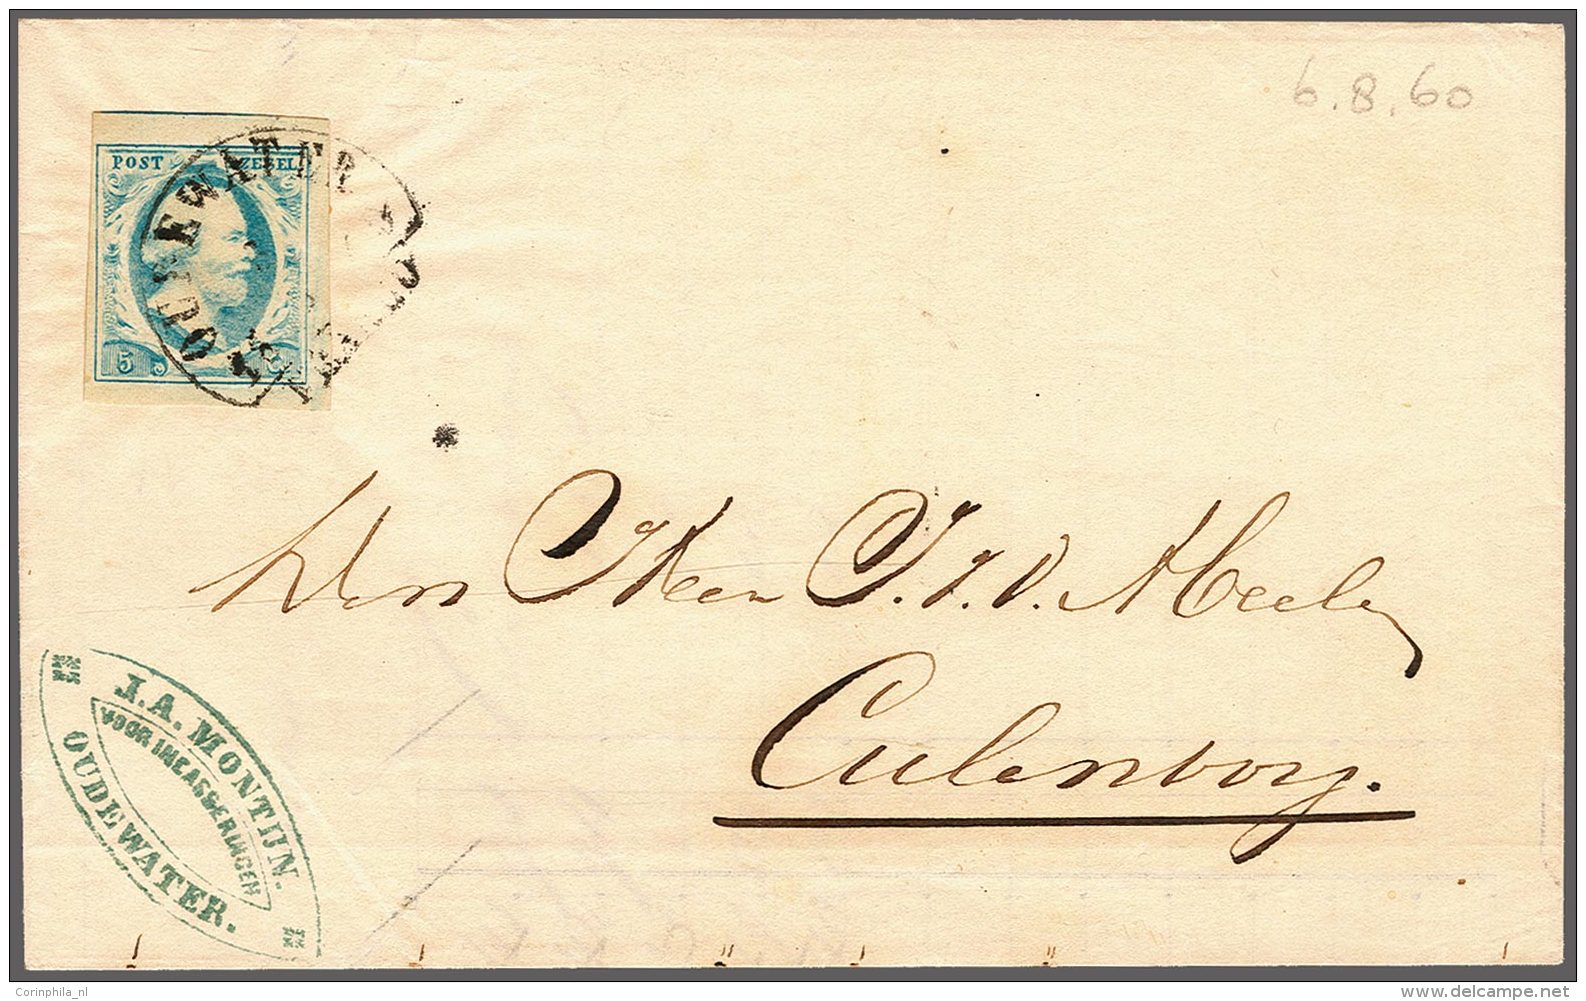 6.8.60
POST ZEGEL
OUDEWATER
5
Den Heer J. J. V. Meele
Culenborg.
J. A. MONTIJN.
VOOR INCASSERINGEN
OUDEWATER.
Corinphila_nl
delcampe.net